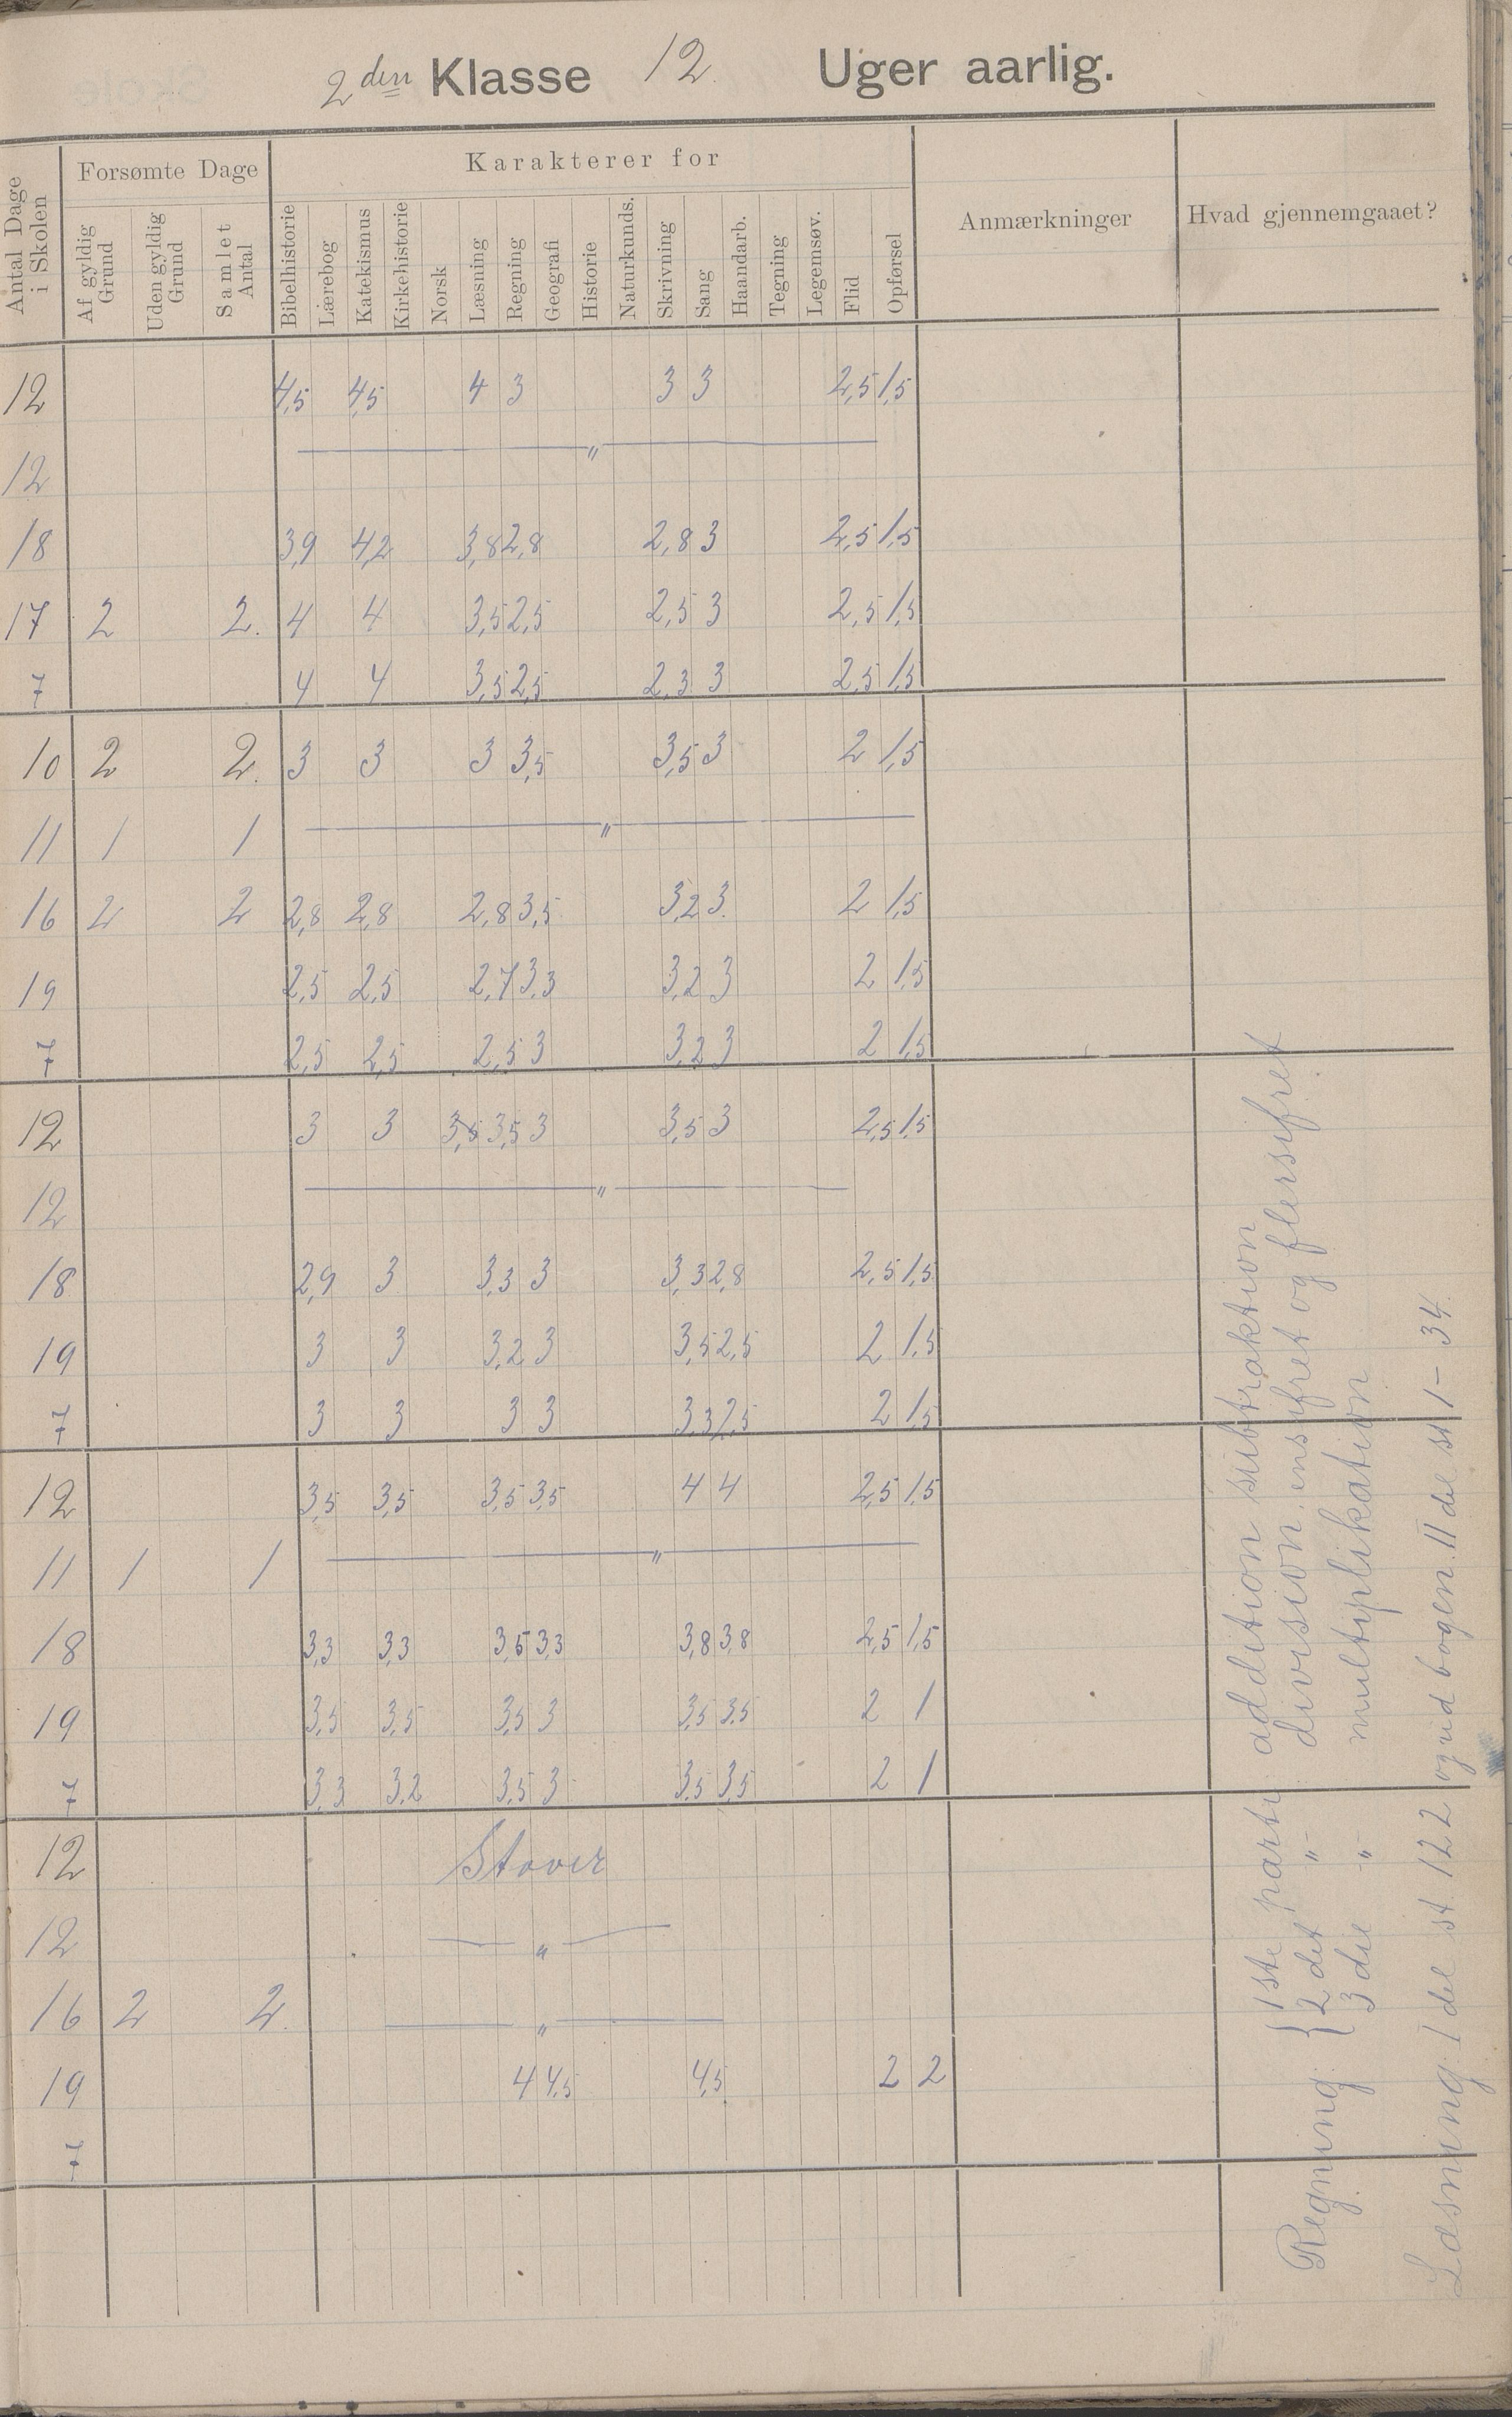 2den Klasse 12. Uger aarlig.
Antal Dage i Skolen
Forsømte Dage
Karakterer for
Anmærkninger
Hvad gjennemgaaet?
Af gyldig Grund
Uden gyldig Grund
Samlet Antal
Bibelhistorie
Lærebog
Katekismus
Kirkehistorie
Norsk
Læsning
Regning
Geografi
Historie
Naturkunds.
Skrivning
Sang
Haandarb.
Tegning
Legemsøv.
Flid
Opførsel
12 4,5 4,5 4 3 3 3 2,5 1,5
12 — „ —
18 3,9 4,2 3,8 2,8 2,8 3 2,5 1,5
17 2 2. 4 4 3,5 2,5 2,5 3 2,5 1,5
7 4 4 3,5 2,5 2,3 3 2,5 1,5
10 2 2. 3 3 3 3,5 3,5 3 2 1,5
11 1 1 — „ —
16 2 2 2,8 2,8 2,8 3,5 3,2 3. 2 1,5
19 2,5 2,5 2,7 3,3 3,2 3 2 1,5
7 2,5 2,5 2,5 3 3,2 3 2 1,5
12 3 3 3,5 3,5 3 3,5 3 2,5 1,5
12 — „ —
18 2,9 3 3,3 3 3,3 2,8 2,5 1,5
19 3 3 3,2 3 3,5 2,5 2 1,5
7 3 3 3 3 3,3 2,5 2 1,5
12 3,5 3,5 3,5 3,5 4 4 2,5 1,5
11 1 1 — „ —
18 3,3 3,3 3,5 3,3 3,8 3,8 2,5 1,5
19 3,5 3,5 3,5 3 3,5 3,5 2 1
7 3,3 3,2 3,5 3 3,5 3,5 2 1
12 Staver
12 — „ —
16 2 2. — „ —
19 4 4,5 4,5 2 2
7
Regning: { 1ste parti addition subtraktion
2det „ division. ensifret og flersifret
3die „ multiplikation
Læsning: I del st 122 og ud bogen. II del st 1 – 34.